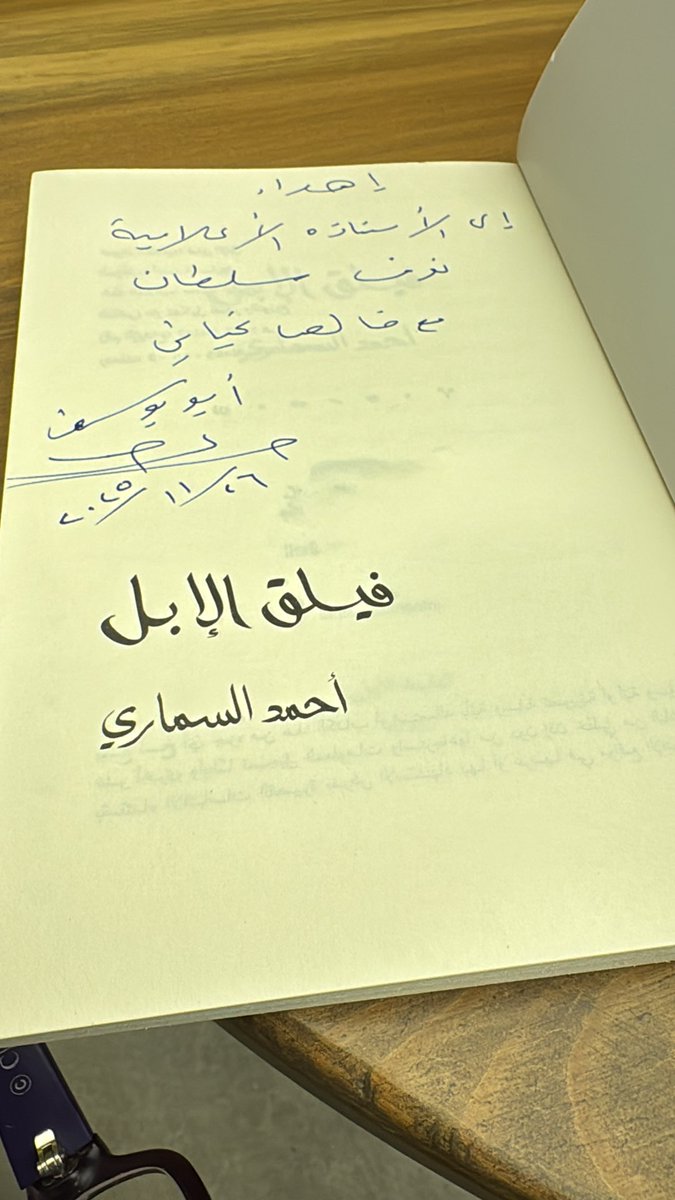 إهداء
إلى الأستاذه الأعلامية
نوف سلطان
مع خالص تحياتي
أبو يوسف
٢٠٢٥/١١/٢٦
فيلق الإبل
أحمد السماري